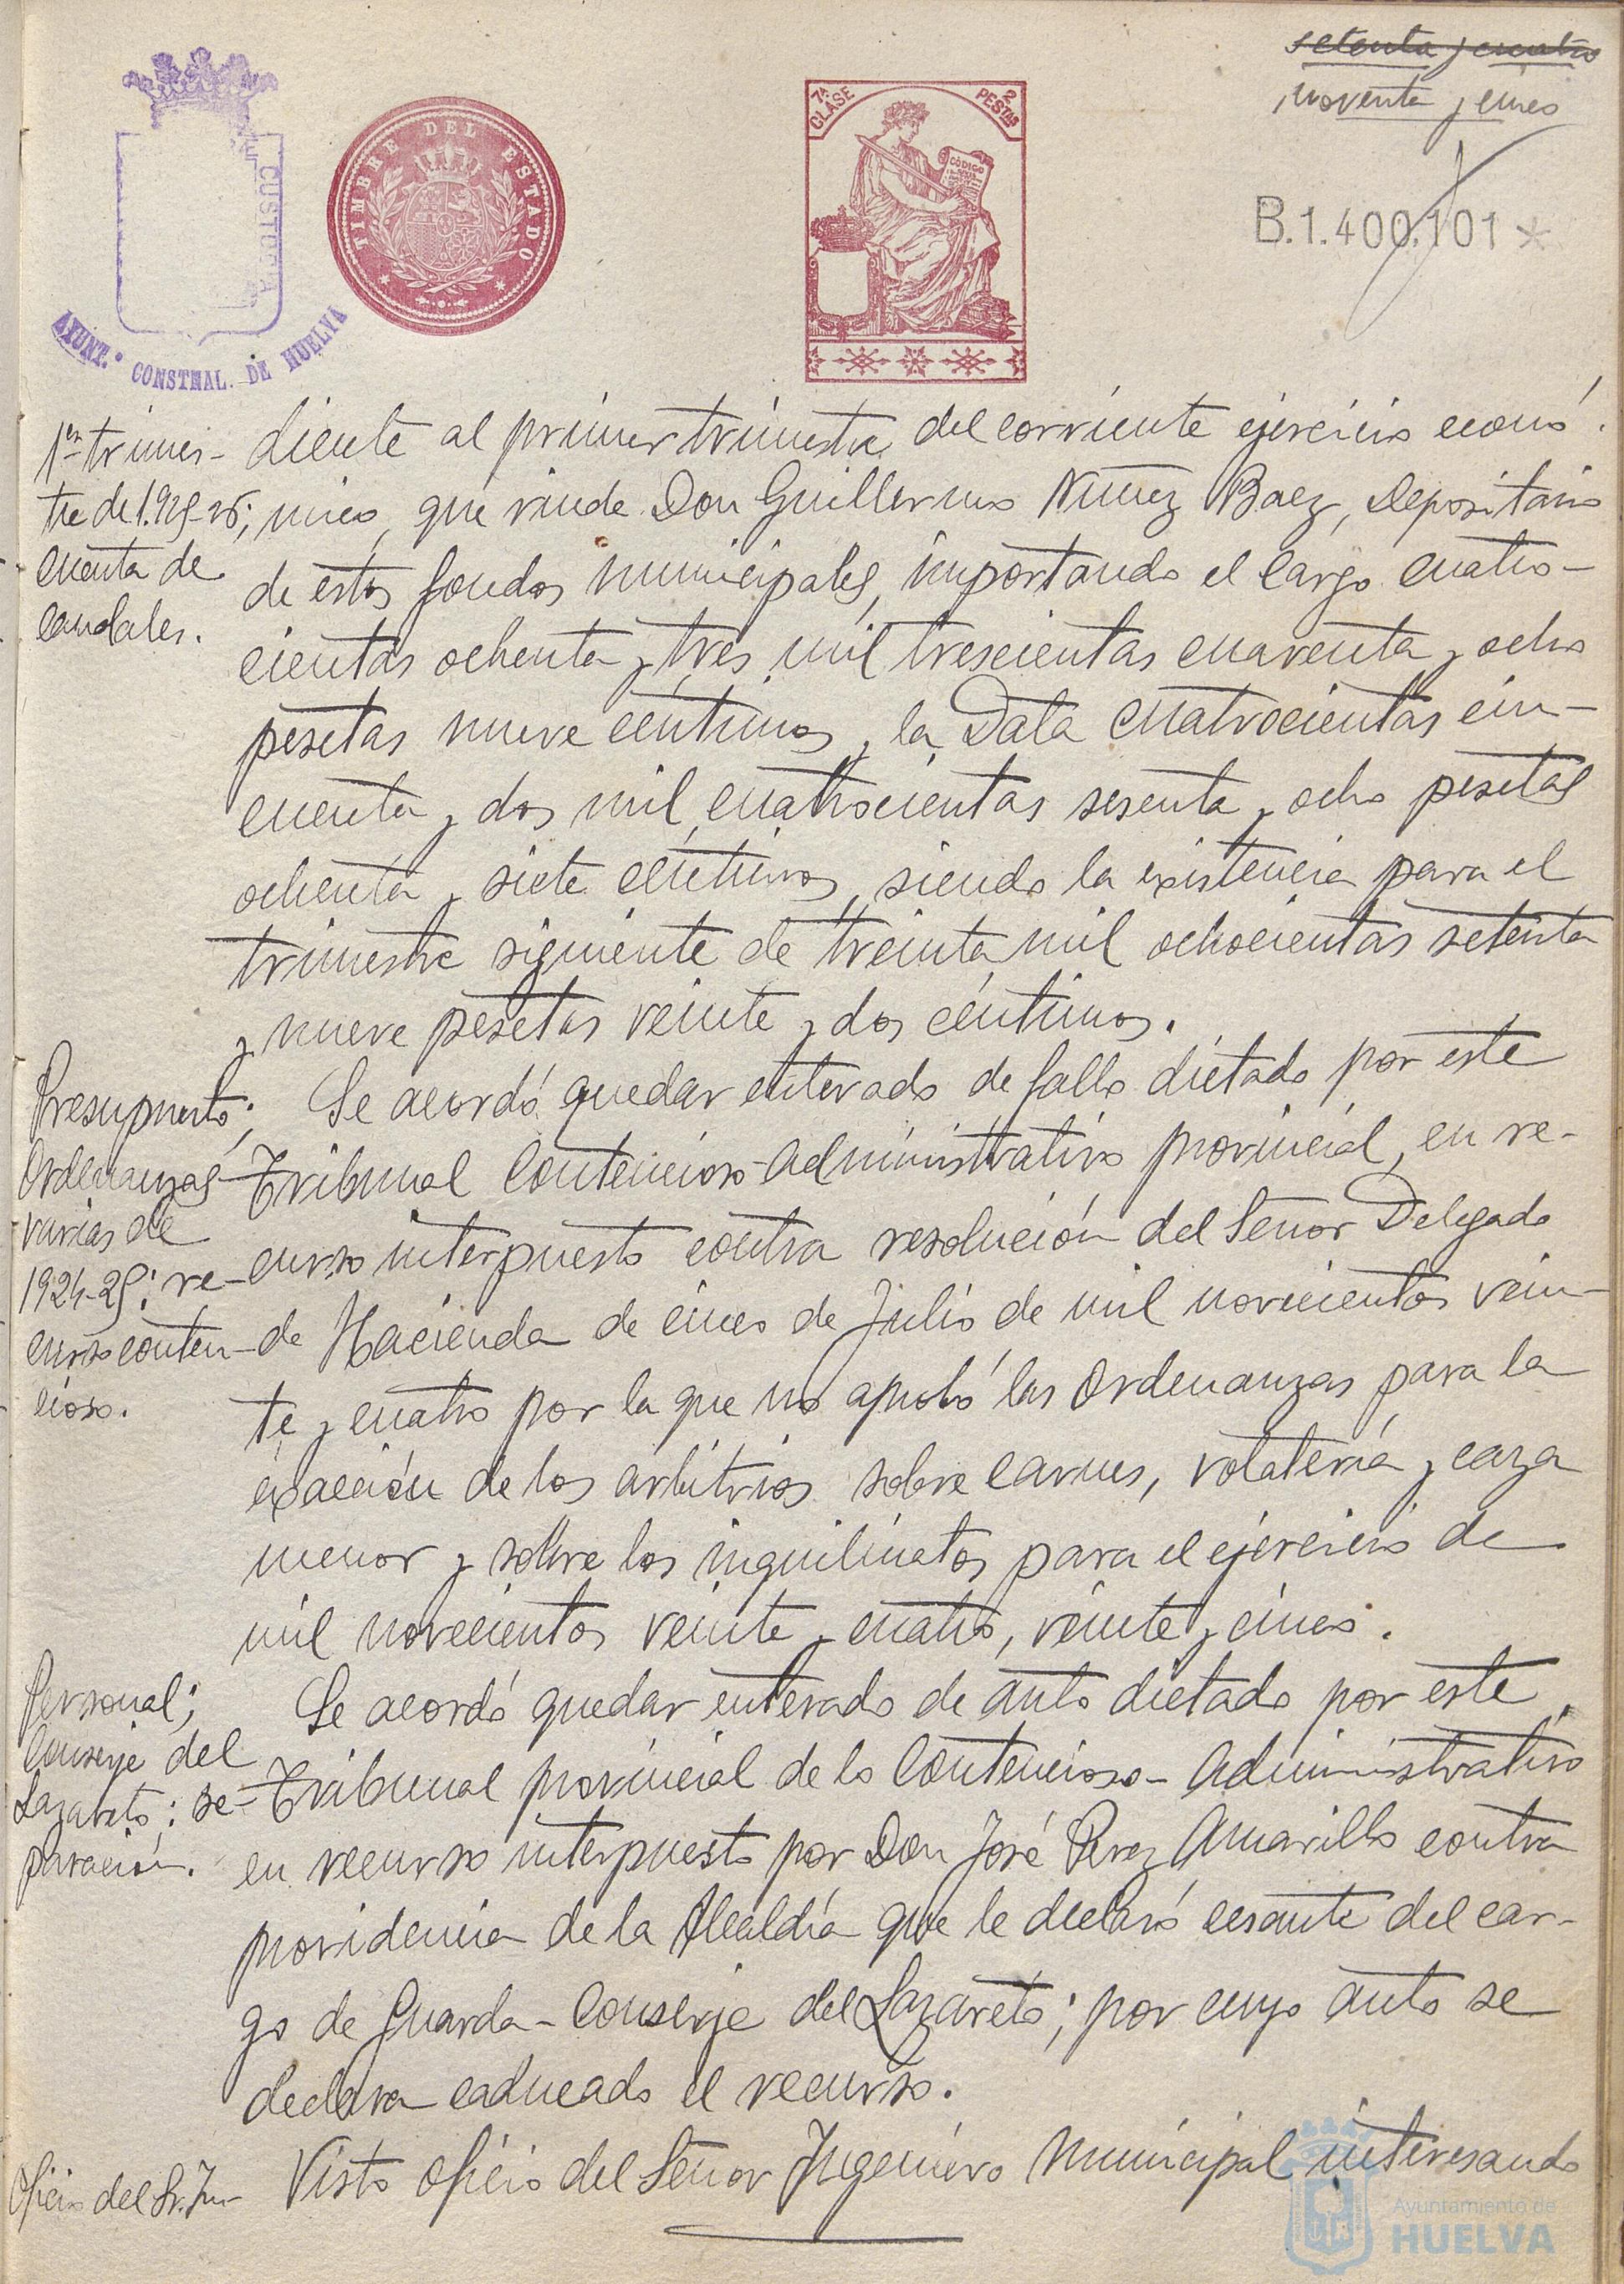 setenta y cuatro
noventa y cinco
B.1.400.101 *
CUSTODIA
AYUNT.º CONSTNAL. DE HUELVA
TIMBRE DEL ESTADO
7ª CLASE
2 PESTAS
CÓDIGO
1er trimes-
tre de 1.925-26;
cuenta de
caudales.
diente al primer trimestre del corriente ejercicio econó-
mico, que rinde Don Guillermo Núñez Baez, Depositario
de estos fondos municipales, importando el cargo cuatro-
cientas ochenta y tres mil trescientas cuarenta y ocho
pesetas nueve céntimos, la Data cuatrocientas cin-
cuenta y dos mil cuatrocientas sesenta y ocho pesetas
ochenta y siete céntimos, siendo la existencia para el
trimestre siguiente de treinta mil ochocientas setenta
y nueve pesetas veinte y dos céntimos.
Presupuesto;
Ordenanzas
varias de
1924-25; re-
curso conten-
cioso.
Se acordó quedar enterado de fallo dictado por este
Tribunal Contencioso-administrativo provincial, en re-
curso interpuesto contra resolución del Señor Delegado
de Hacienda de cinco de Julio de mil novecientos vein-
te y cuatro por la que no aprobó las Ordenanzas para la
exacción de los arbitrios sobre carnes, volatería y caza
menor y sobre los inquilinatos para el ejercicio de
mil novecientos veinte y cuatro, veinte y cinco.
Personal;
Conserje del
Lazareto; se-
paración.
Se acordó quedar enterado de auto dictado por este
Tribunal provincial de lo Contencioso-Administrativo
en recurso interpuesto por Don José Perez Amarillo contra
providencia de la Alcaldía que le declaró cesante del car-
go de Guarda-Conserje del Lazareto; por cuyo auto se
declara caducado el recurso.
Oficio del Sr. In-
Visto oficio del Señor Ingeniero Municipal interesando
Ayuntamiento de
HUELVA